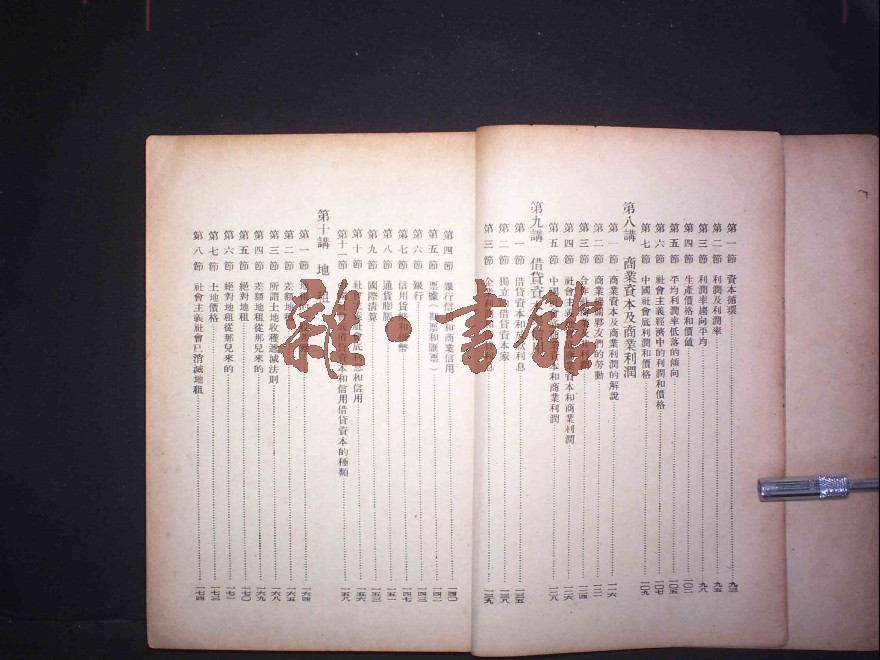 第一節 資本循環 九三
第二節 利潤及利潤率 九五
第三節 利潤率趨向平均 九八
第四節 生產價格和價值 一〇二
第五節 平均利潤率低落的傾向 一〇五
第六節 社會主義經濟中的利潤和價格 一〇七
第七節 中國社會底利潤和價格 一〇九
第八講 商業資本及商業利潤
第一節 商業資本及商業利潤的解說 一一六
第二節 商業 夥友們的勞動 一二一
第三節 一二四
第四節 社會主義 資本和商業利潤 一二六
第五節 中國 資本和商業利潤 一二八
第九講 借貸資
第一節 借貸資本和 利息 一三五
第二節 獨立 借貸資本家 一三八
第三節 企業利 一三九
第四節 銀行資 和商業信用 一四〇
第五節 票據(期票和匯票) 一四二
第六節 銀行 一四三
第七節 信用貨幣和 幣 一四七
第八節 通貨膨脹 一五一
第九節 國際清算 一五三
第十節 社會主義社會底利息和信用 一五六
第十一節 資本和信用借貸資本的種類 一五八
第十講 地租
第一節 一六四
第二節 差額地租 一六五
第三節 所謂土地收穫遞減法則 一六八
第四節 差額地租從那兒來的 一六九
第五節 絕對地租 一七〇
第六節 絕對地租從那兒來的 一七一
第七節 土地價格 一七三
第八節 社會主義社會已消滅地租 一七四
雜·書館